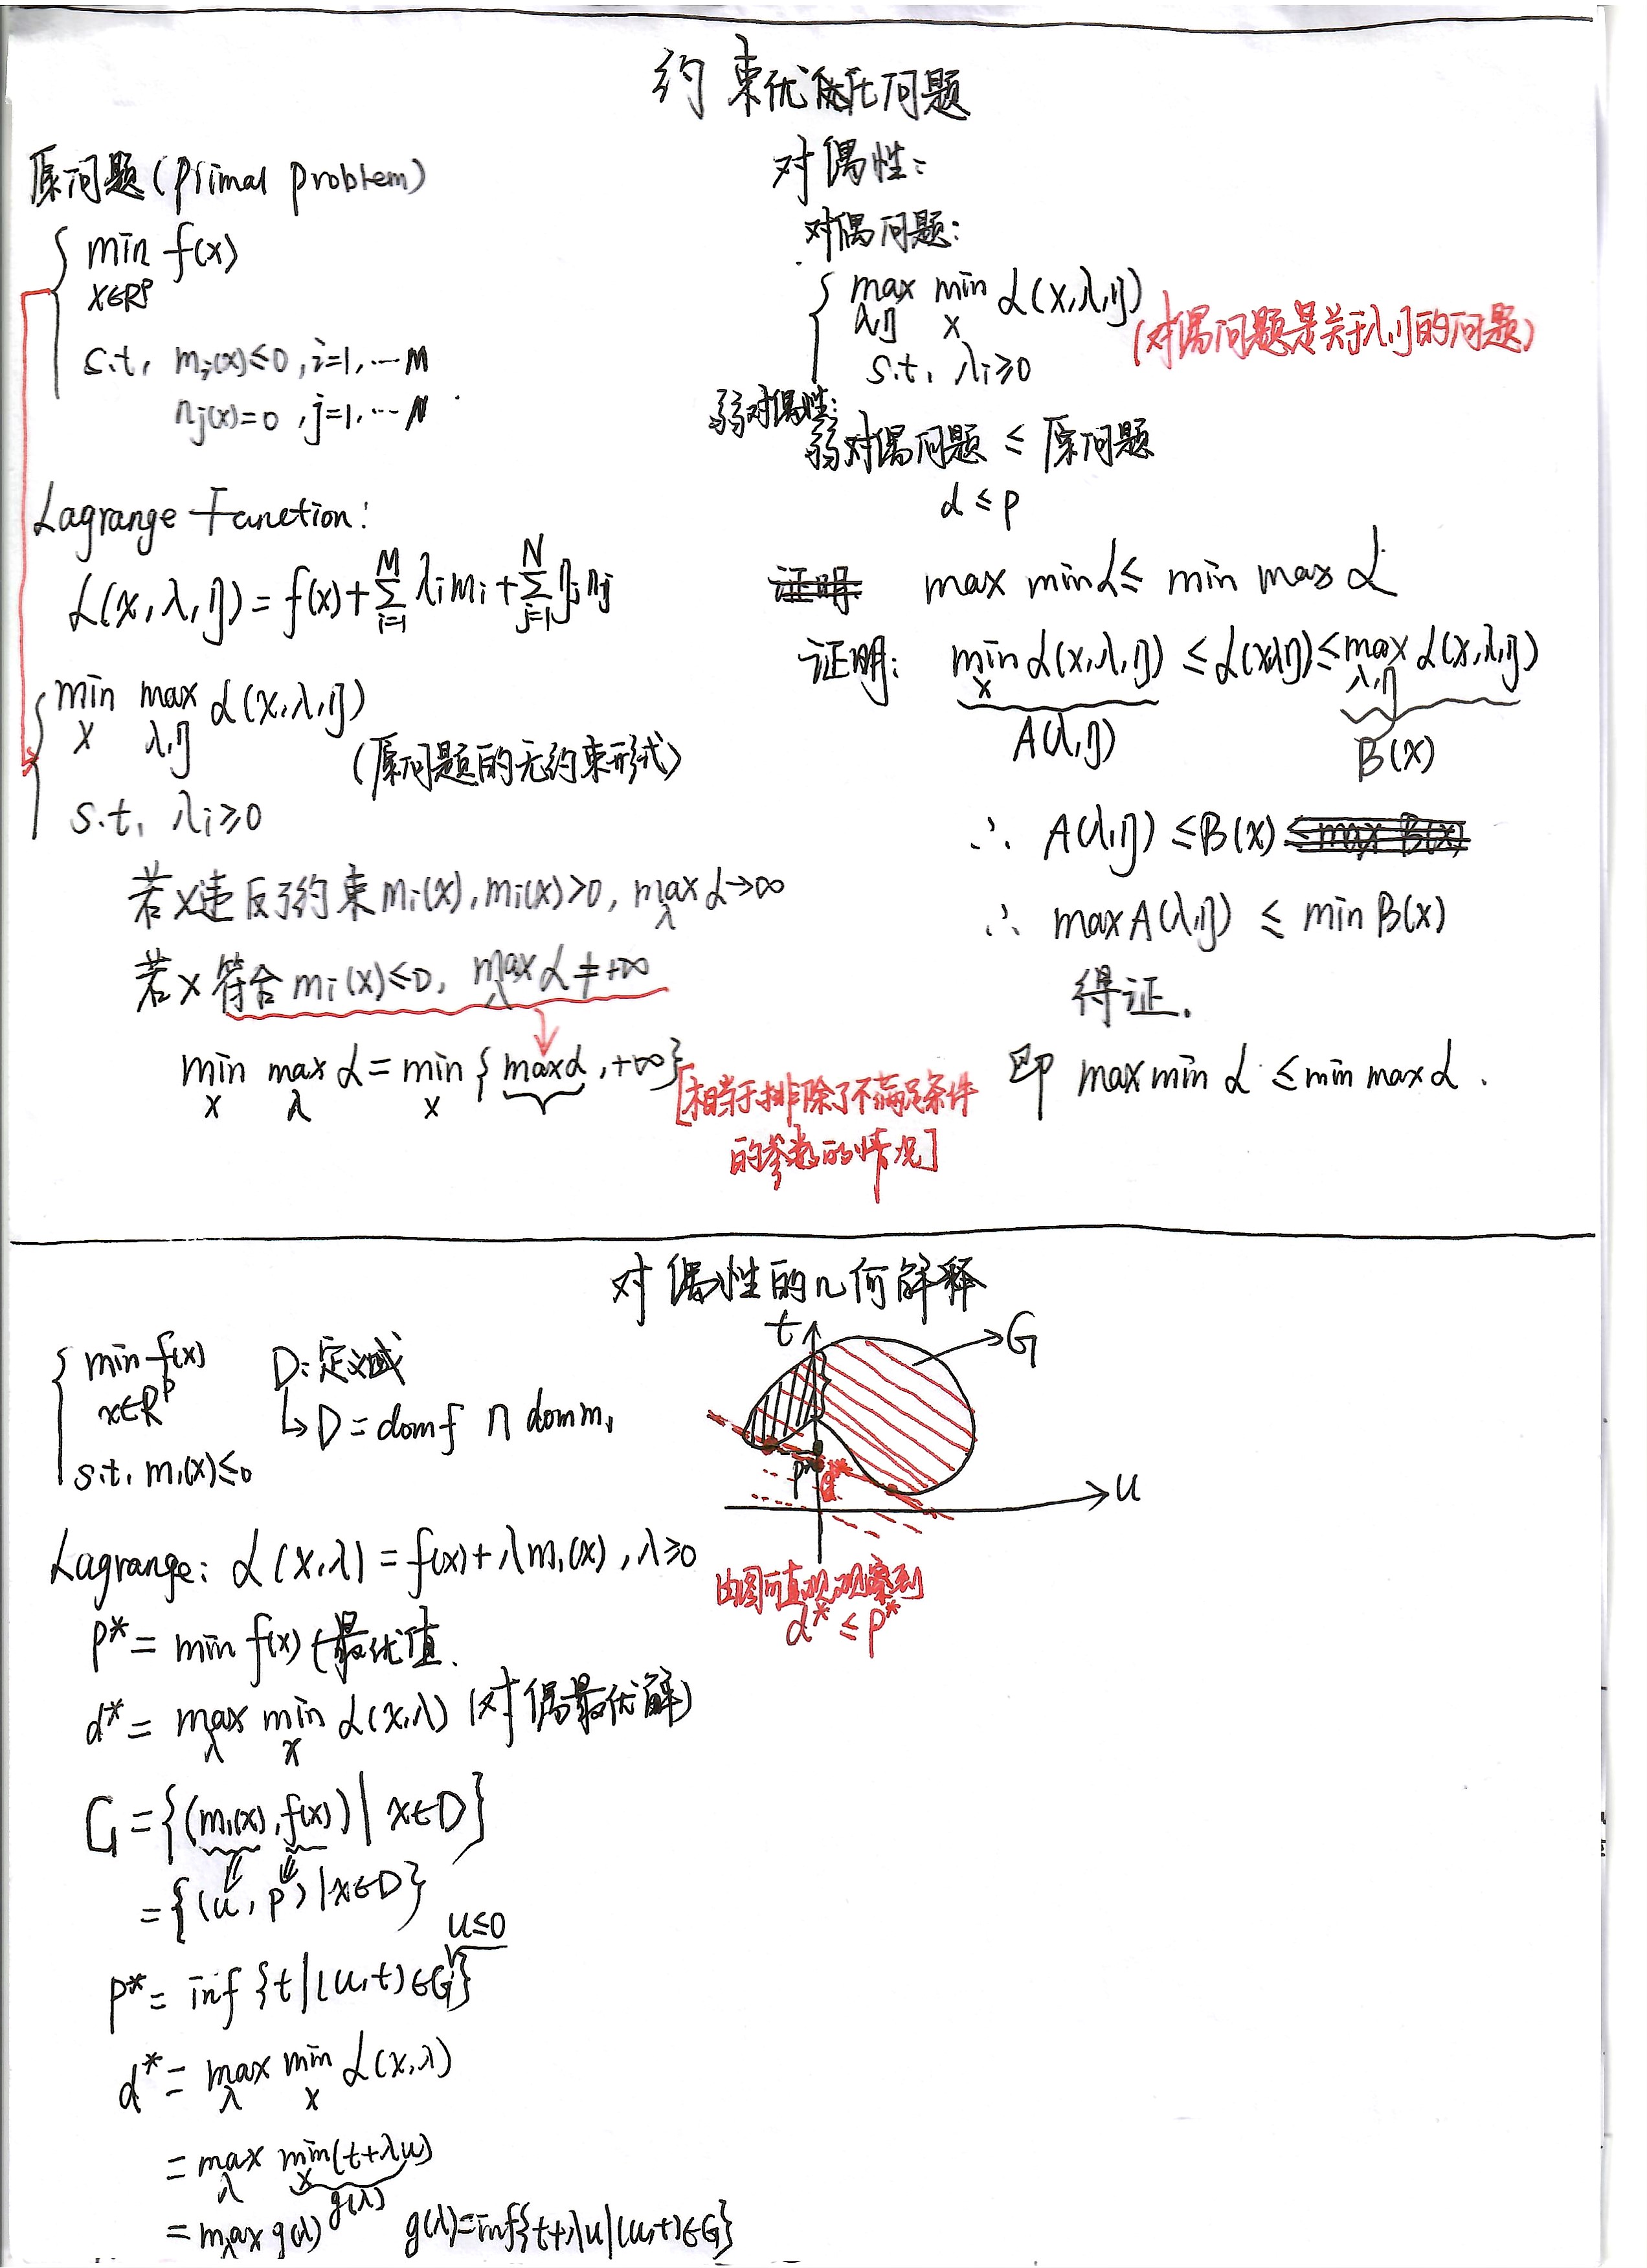 约束优化问题
原问题(Primal Problem)
min f(x)
x∈Rᵖ
s.t. mᵢ(x)≤0, i=1, … M
nⱼ(x)=0, j=1, … N
Lagrange Function:
L(x,λ,η) = f(x) + Σ_{i=1}^{M} λᵢmᵢ + Σ_{j=1}^{N} ηⱼnⱼ
min max L(x,λ,η)
x λ,η
(原问题的无约束形式)
s.t. λᵢ≥0
若x违反了约束mᵢ(x), mᵢ(x)>0, max_λ L→∞
若x符合mᵢ(x)≤0, max_λ L≠+∞
min_x max_λ L = min_x {max L, +∞}
[相当于排除了不满足条件
的参数的情况]
对偶性:
对偶问题:
max min L(x,λ,η)
λ,η x
(对偶问题是关于λ,η的问题)
s.t. λᵢ≥0
弱对偶性:
弱对偶问题 ≤ 原问题
d ≤ p
max min L ≤ min max L
证明: min_x L(x,λ,η) ≤ L(x,λ,η) ≤ max_{λ,η} L(x,λ,η)
A(λ,η) B(x)
∴ A(λ,η) ≤ B(x)
∴ max A(λ,η) ≤ min B(x)
得证.
即 max min L ≤ min max L.
对偶性的几何解释
min f(x)
x∈Rᵖ
s.t. m₁(x)≤0
D:定义域
↳ D = dom f ∩ dom m₁
t
G
p*
d*
u
由图可直观观察到
d* ≤ p*
Lagrange: L(x,λ) = f(x) + λm₁(x), λ≥0
p* = min f(x) (最优值.
d* = max_λ min_x L(x,λ) (对偶最优解)
G = {(m₁(x), f(x)) | x∈D}
= {(u, p) | x∈D}
u≤0
p* = inf {t | (u,t)∈G}
d* = max_λ min_x L(x,λ)
= max_λ min_x (t+λu)
g(λ)
= max_λ g(λ) g(λ)=inf{t+λu | (u,t)∈G}